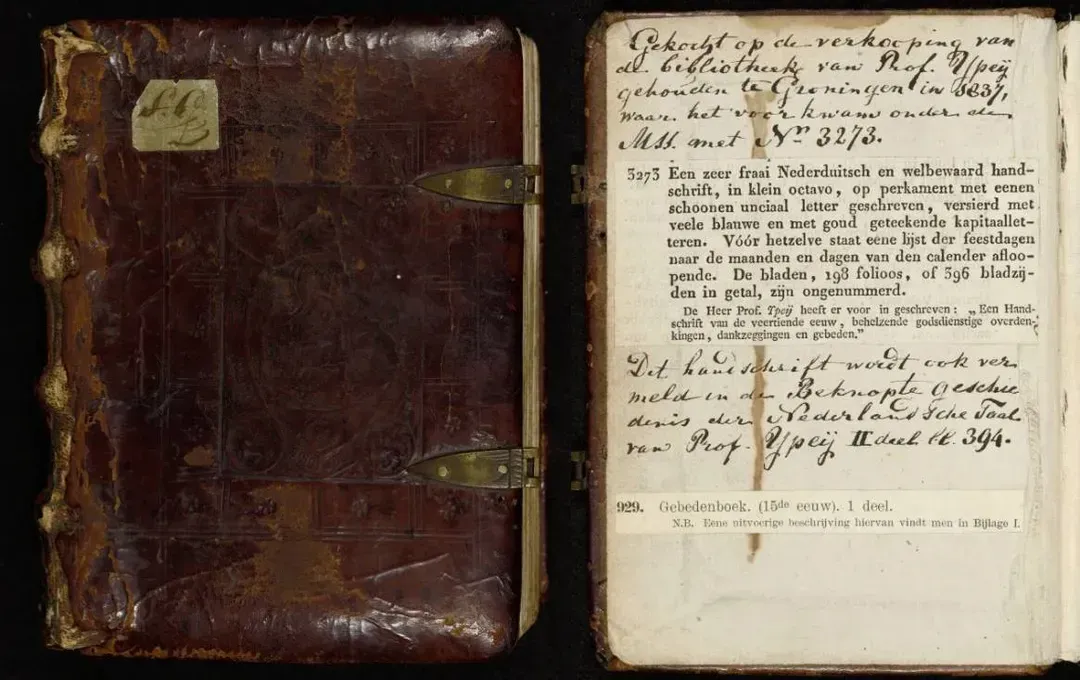 Gekocht op de verkooping van
de bibliotheek van Prof. Ypeij
gehouden te Groningen in 1837,
waar het voor kwam onder de
MSS. met Nr 3273.
3273 Een zeer fraai Nederduitsch en welbewaard hand-
schrift, in klein octavo, op perkament met eenen
schoonen unciaal letter geschreven, versierd met
veele blauwe en met goud geteekende kapitaallet-
teren. Vóór hetzelve staat eene lijst der feestdagen
naar de maanden en dagen van den calender afloo-
pende. De bladen, 198 folioos, of 396 bladzij-
den in getal, zijn ongenummerd.
De Heer Prof. Ypeij heeft er voor in geschreven: „Een Hand-
schrift van de veertiende eeuw, behelzende godsdienstige overden-
kingen, dankzeggingen en gebeden.”
Dit handschrift wordt ook ver
meld in de Beknopte geschie
denis der Nederlandsche Taal
van Prof. Ypeij II deel bl. 394.
929. Gebedenboek. (15de eeuw). 1 deel.
N.B. Eene uitvoerige beschrijving hiervan vindt men in Bijlage I.